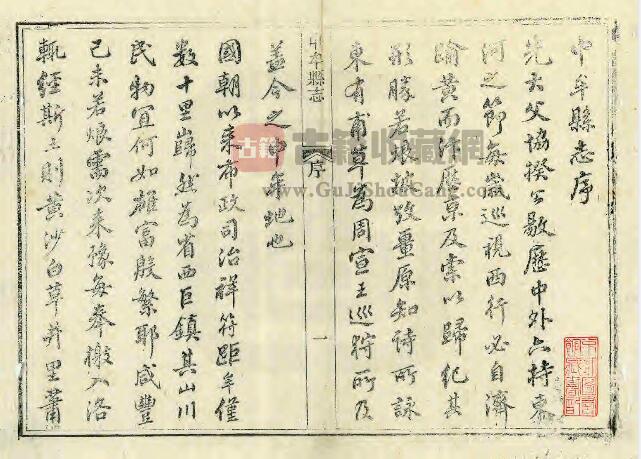 中牟縣志序
先大父協揆公敭歷中外六持東
河之節每歲巡視西行必自濟
踰黃而汴歷京及索以歸紀其
形勝若烺披攷畺原知詩所詠
東有甫草為周宣王巡狩所及
蓋今之中牟地也
中牟縣志
序
一
國朝以來布政司治祥符距牟僅
數十里巋然為省西巨鎮其山川
民物宜何如雄富殷繁耶咸豐
己未若烺需次來豫每奉檄入洛
輒經斯土則黃沙白草井里蕭
古籍
古籍收藏网
www.GuJiShouCang.com